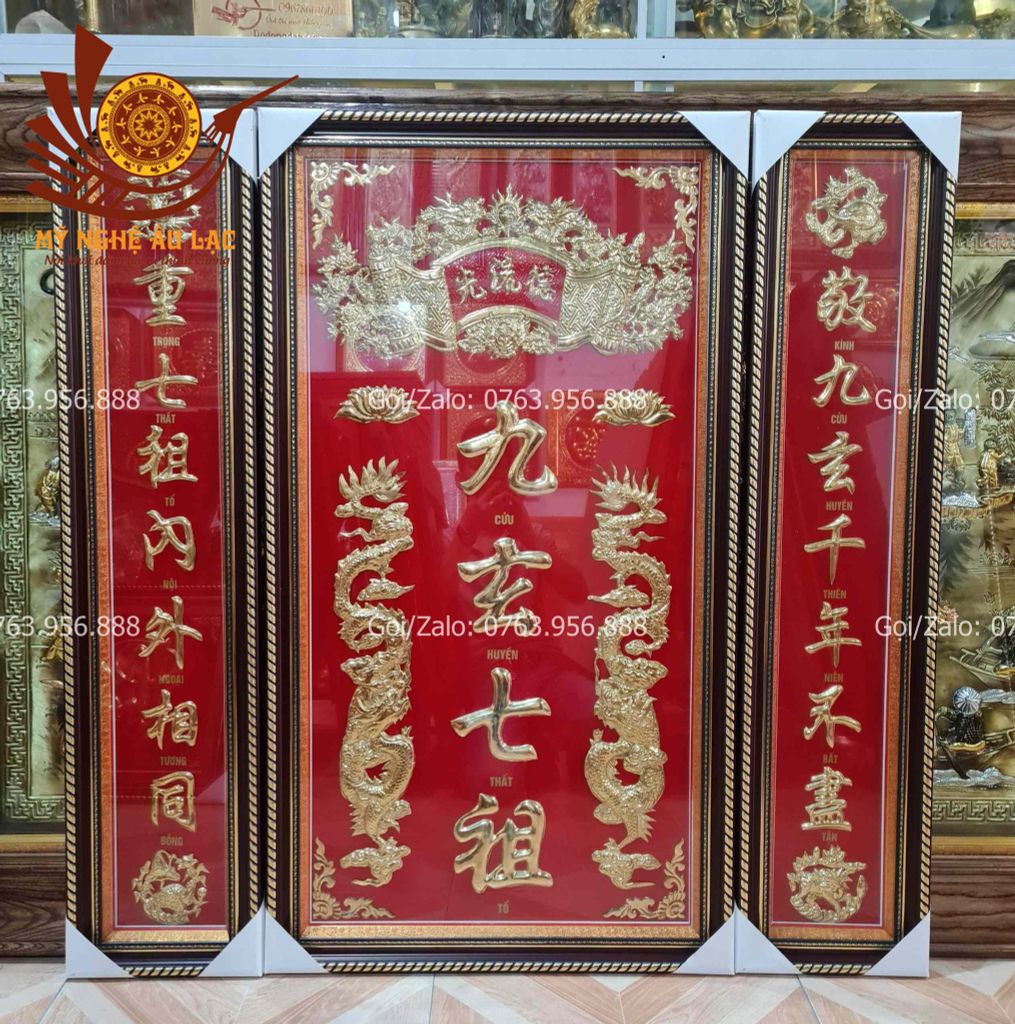 MỸ NGHỆ ÂU LẠC
德流光
九玄七祖
CỬU
HUYỀN
THẤT
TỔ
敬九玄千年不盡
KÍNH
CỬU
HUYỀN
THIÊN
NIÊN
BẤT
TẬN
重七祖內外相同
TRỌNG
THẤT
TỔ
NỘI
NGOẠI
TƯƠNG
ĐỒNG
0763.956.888 Gọi/Zalo: 0763.956.888 Gọi/Zalo: 0
0763.956.888 Gọi/Zalo: 0763.956.888 Gọi/Zalo: 0